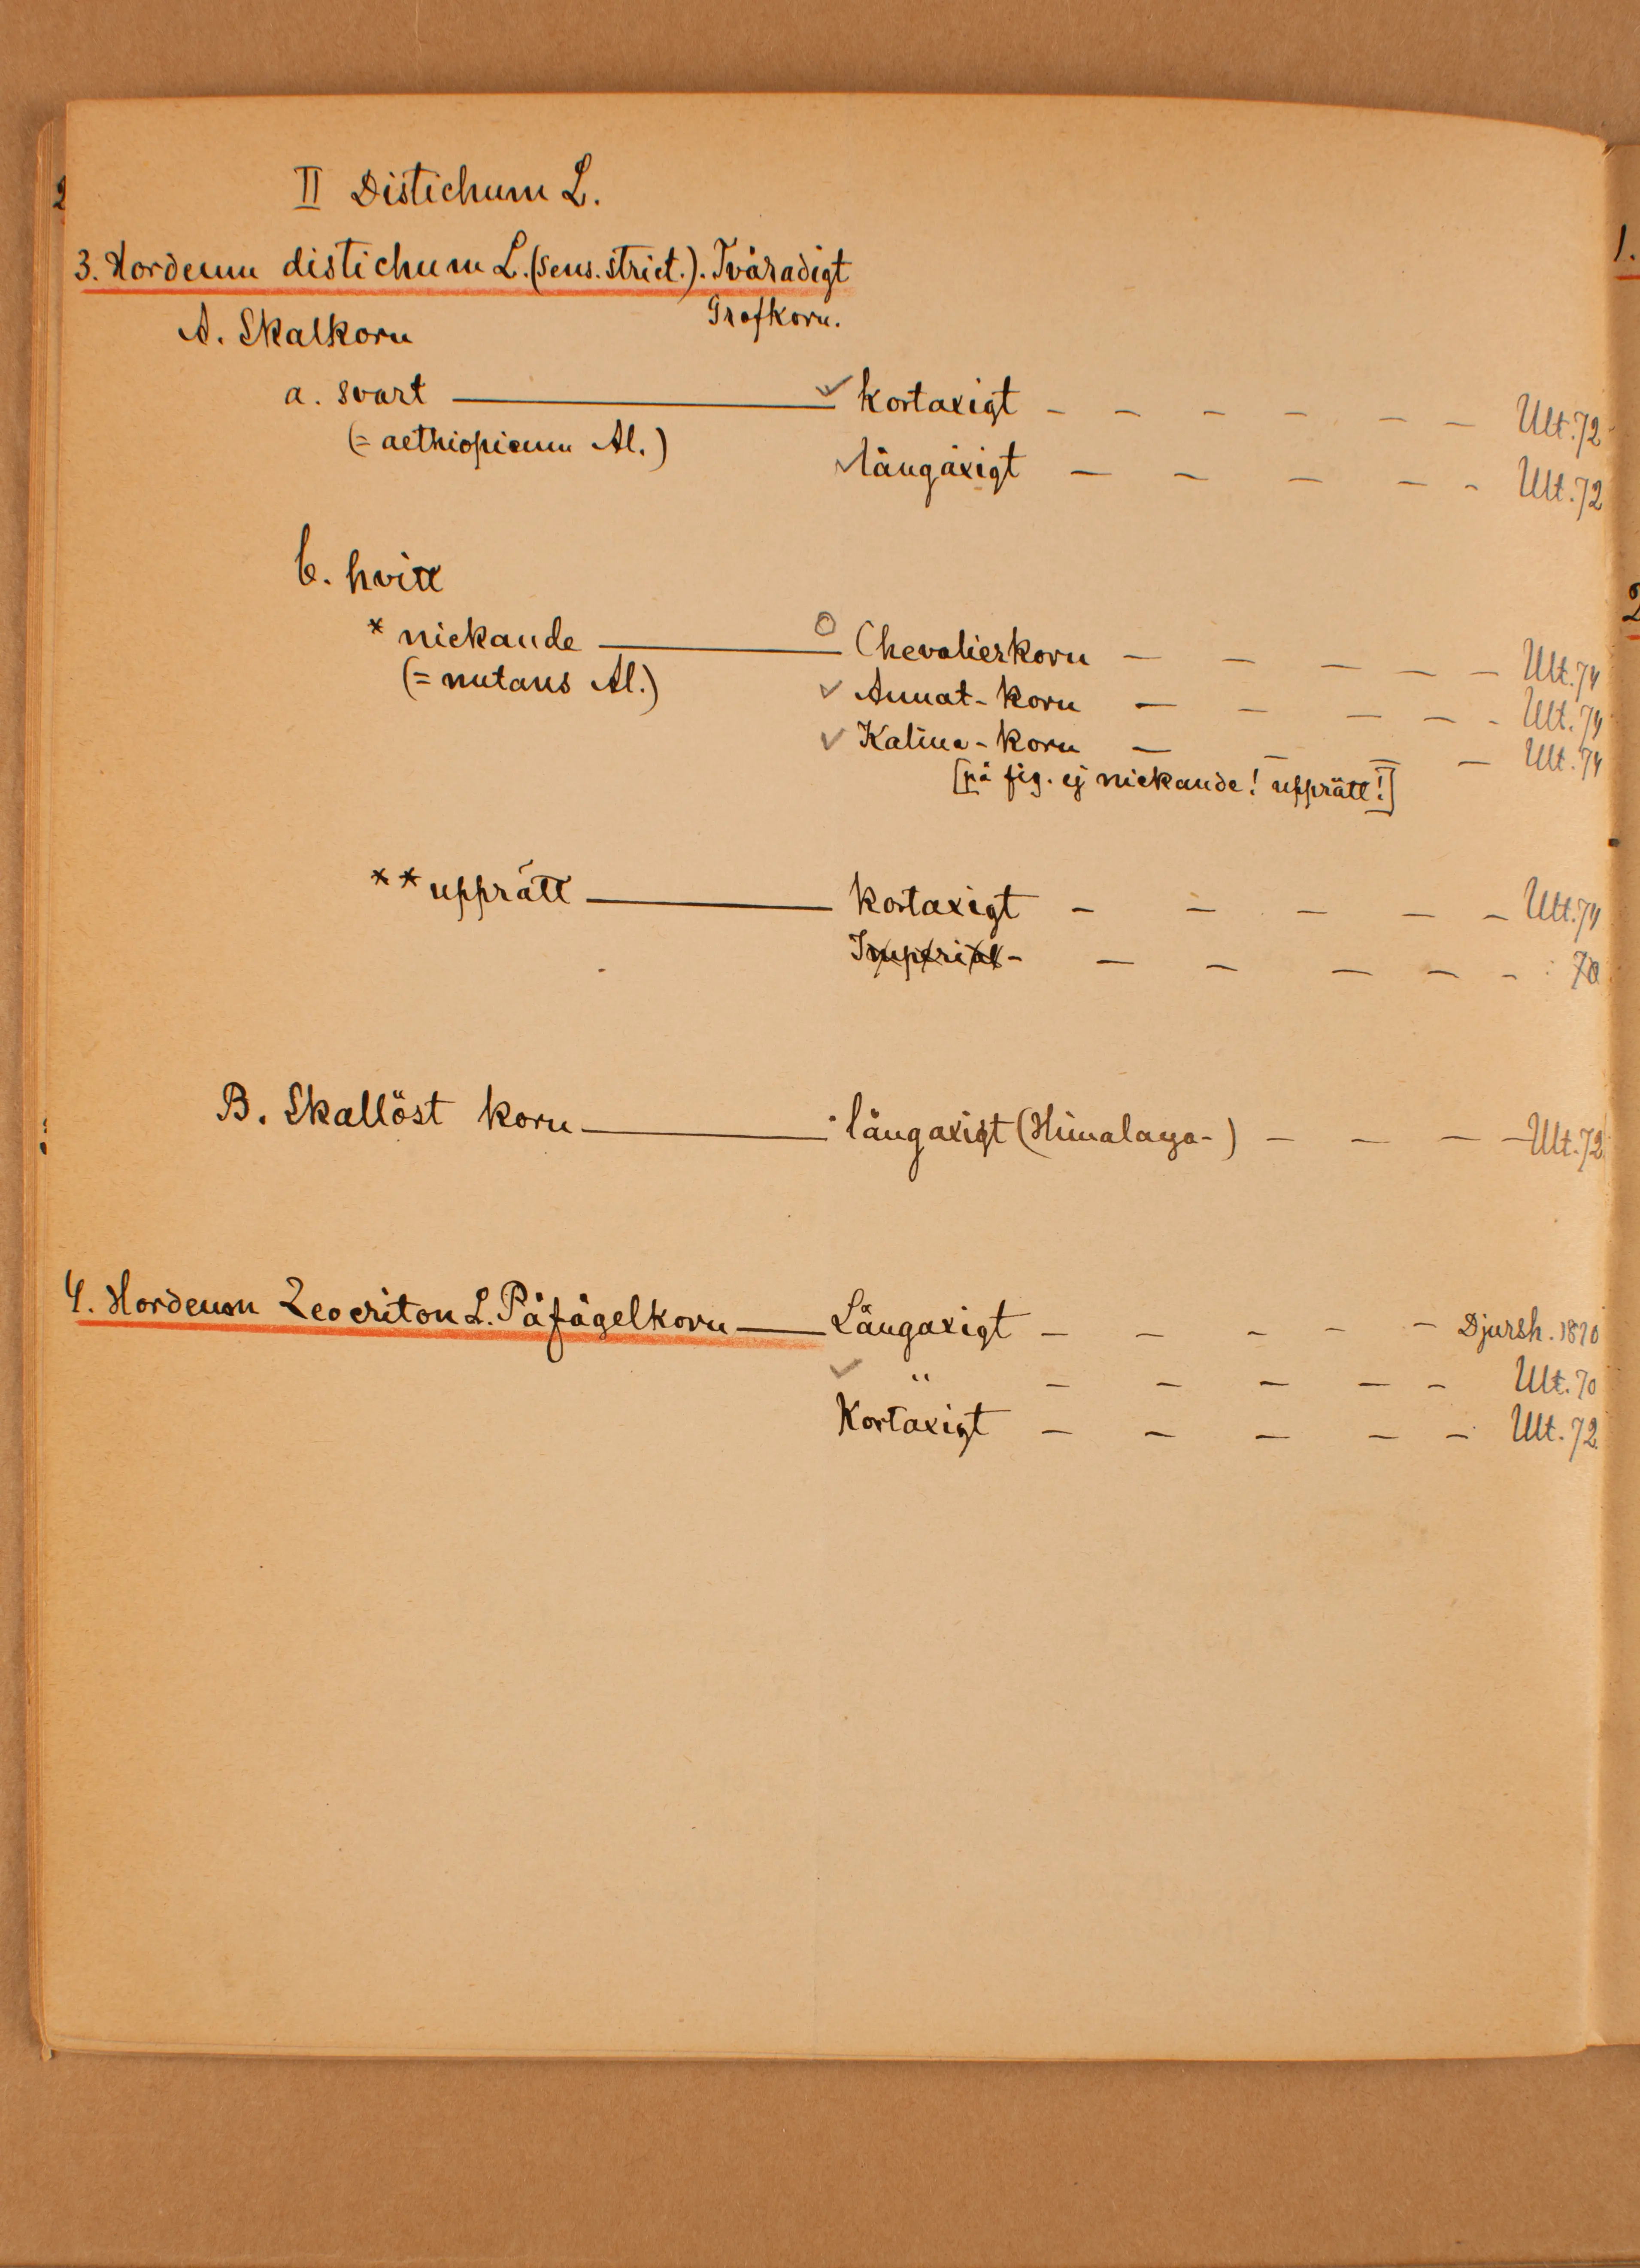 II Distichum L.
3. Hordeum distichum L. (sens. strict.). Tvåradigt
Grofkorn.
A. Skalkorn
a. svart — kortaxigt - - - - - - Ult. 72
(= aethiopicum Al.)
långaxigt - - - - - Ult. 72
b. hvitt
* nickande — Chevalierkorn - - - - - Ult. 74
(= nutans Al.)
Annat-korn - - - - - Ult. 74
Kalina-korn - - - - Ult. 74
[på fig. ej nickande! upprätt!]
** upprätt — kortaxigt - - - - - Ult. 74
Imperial- - - - - - 70
B. Skallöst korn — långaxigt (Himalaya-) - - - - Ult. 72
4. Hordeum Zeocriton L. Påfågelkorn — Långaxigt - - - - - Djursh. 1870
" - - - - - Ult. 70
Kortaxigt - - - - - Ult. 72